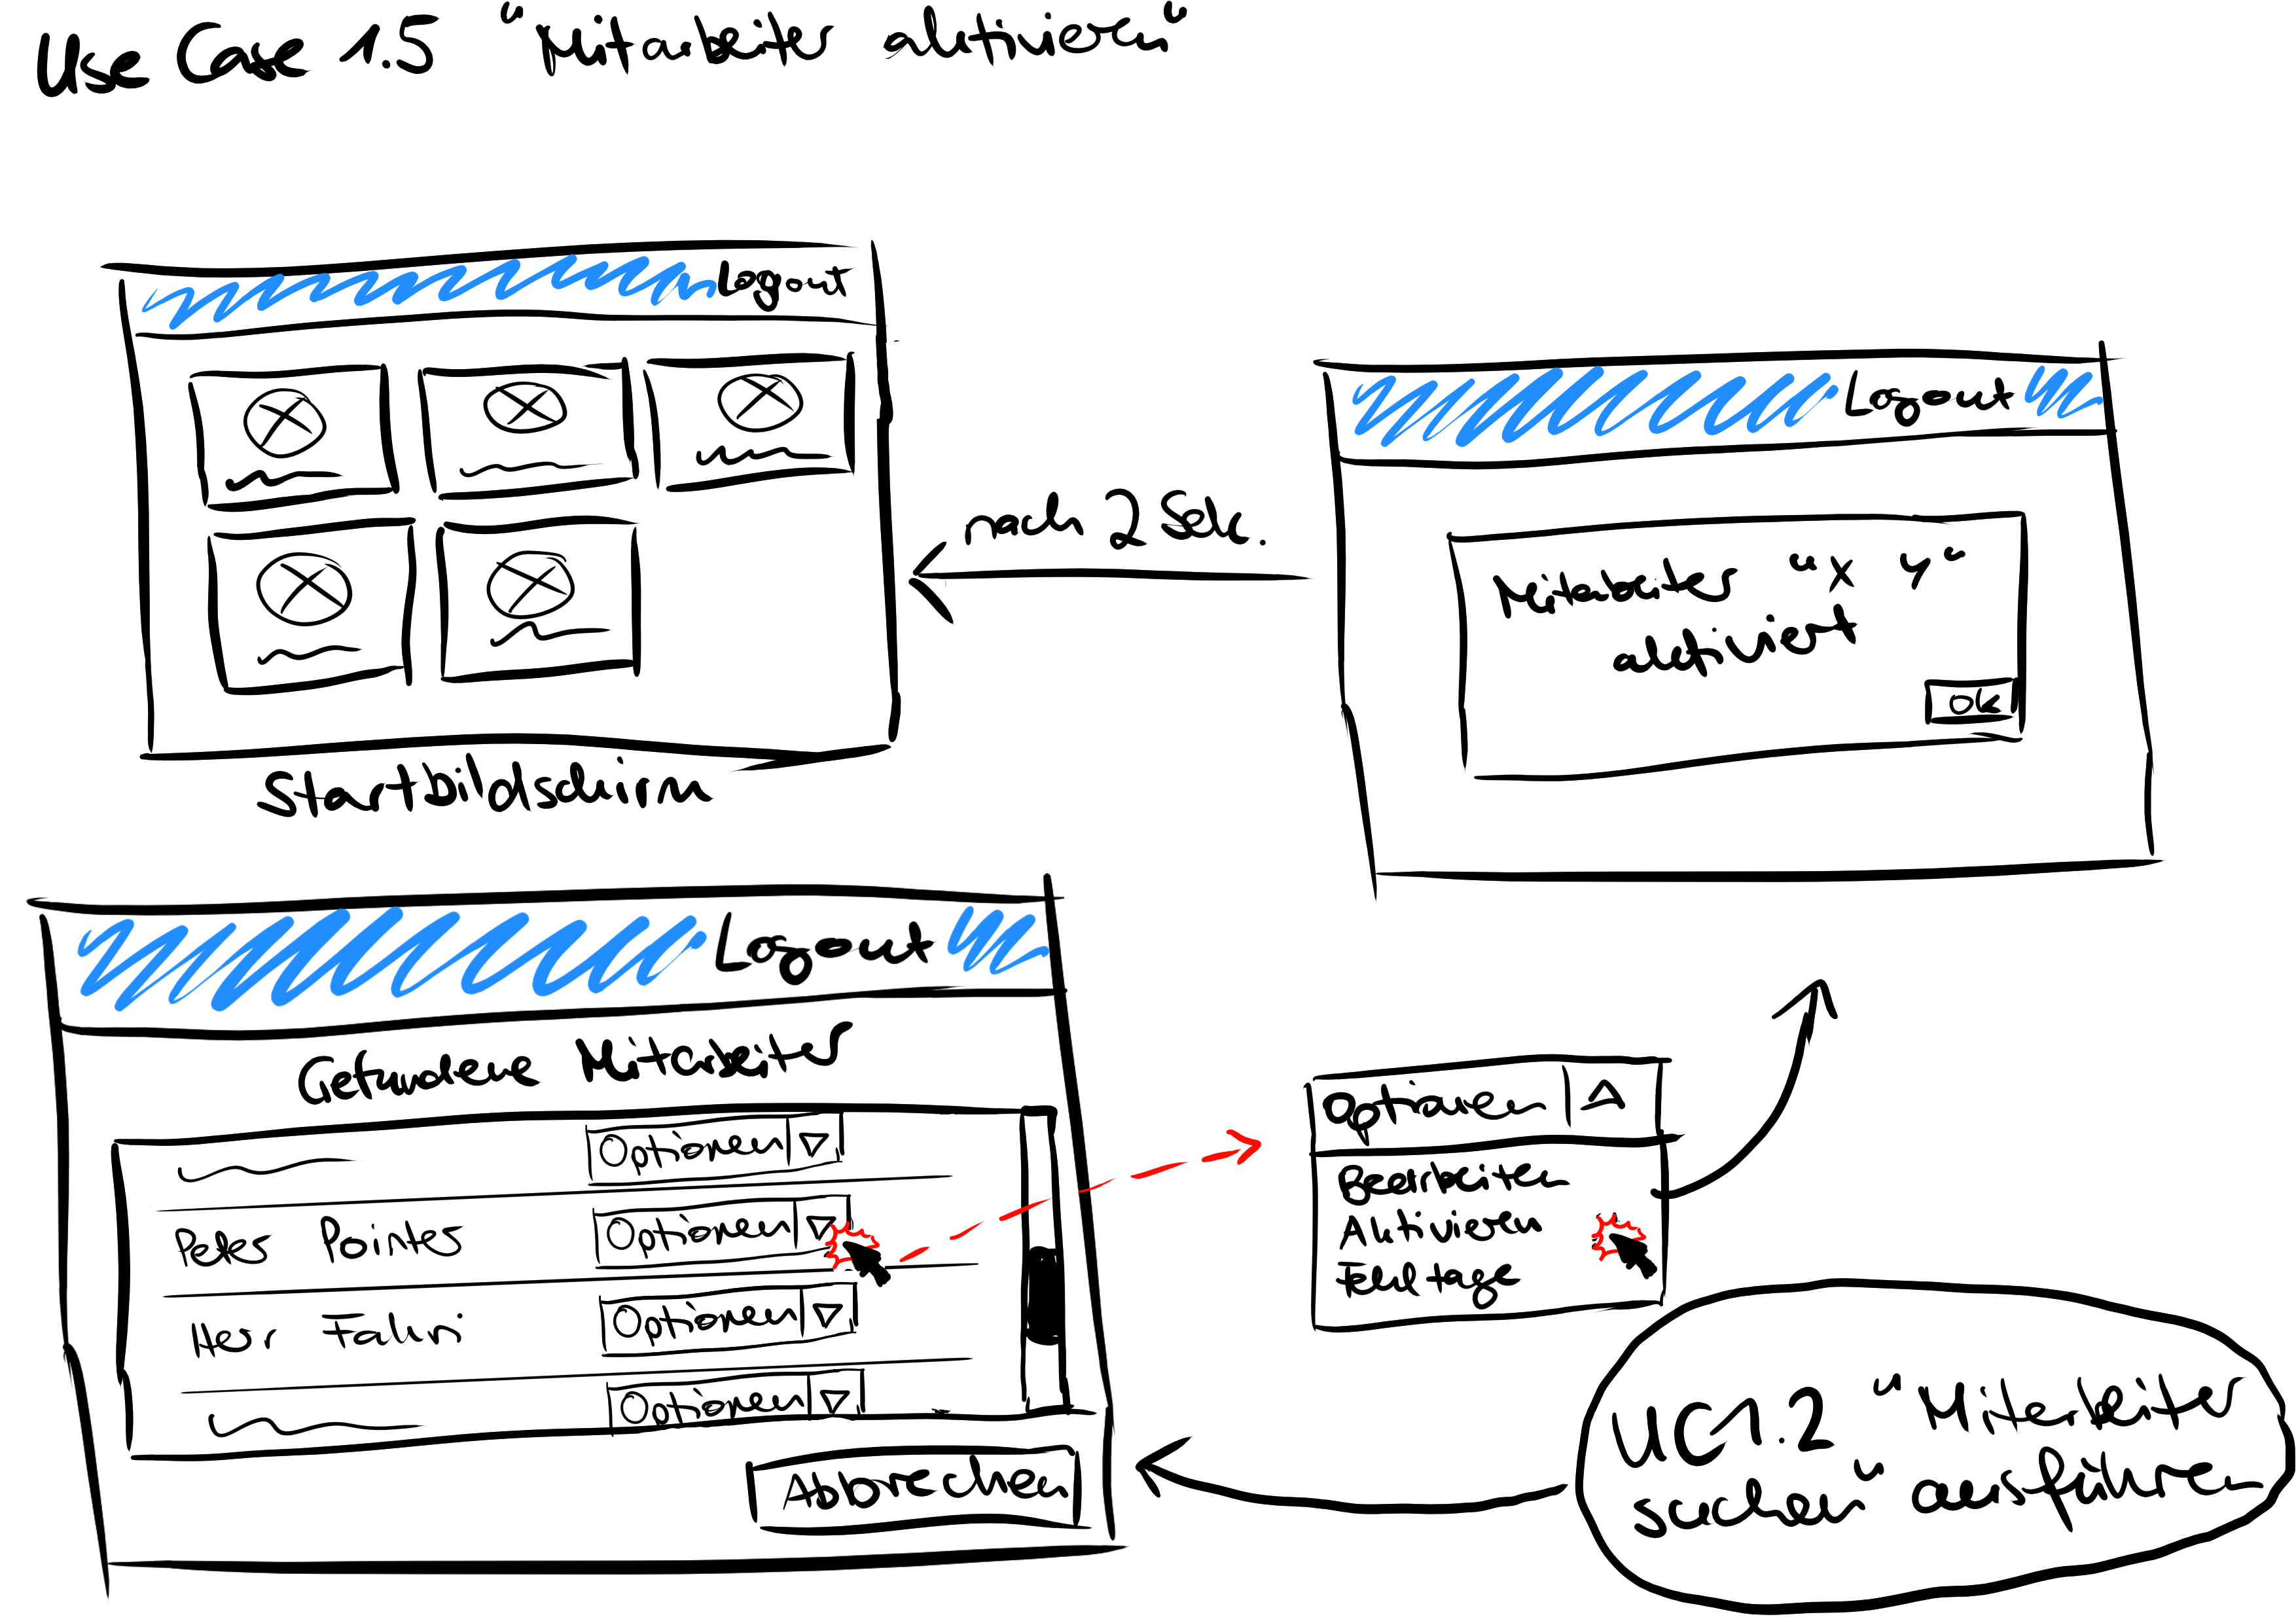 Use Case 1.5 "Mitarbeiter aktivieren"
Logout
Startbildschirm
nach 2 Sek.
Logout
Mitarbeiter "X Y"
aktiviert
OK
Logout
Gefundene Mitarbeiter
Optionen
Peter Pointer
Optionen
Herr Fakiri
Optionen
Optionen
Abbrechen
Optionen
Bearbeiten
Aktivieren
Fehltage
UC 1.2 "Mitarbeiter
suchen" ausführen